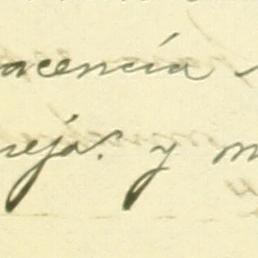 acencia
reja. y m